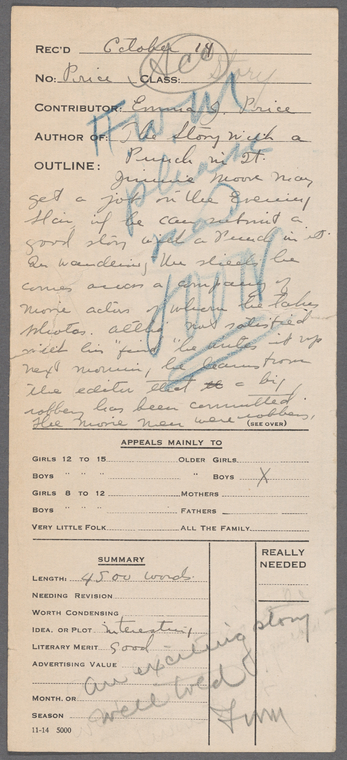 REC'D October 14
Acc
No: Price CLASS: Story
CONTRIBUTOR: Emma I. Price
AUTHOR OF: The Story with a
OUTLINE: Punch in It.
Jimmie Moore may
get a job on the Evening
Star if he can submit a
good story with a Punch in it.
In wandering the streets he
comes across a company of
movie actors of whom he takes
photos.
with his "find" he writes it up
next morning, he learns from
the editor that a big
robbery has been committed.
The movie men were robbers.
(SEE OVER)
FWM
please
read
soon
APPEALS MAINLY TO
GIRLS 12 TO 15 OLDER GIRLS
BOYS " " " " BOYS X
GIRLS 8 TO 12 MOTHERS
BOYS " " " FATHERS
VERY LITTLE FOLK ALL THE FAMILY
SUMMARY
LENGTH: 4500 words.
NEEDING REVISION
WORTH CONDENSING
IDEA, OR PLOT interesting
LITERARY MERIT Good
ADVERTISING VALUE
MONTH, OR
SEASON
11-14 5000
REALLY
NEEDED
An exciting story -
well told
FWM